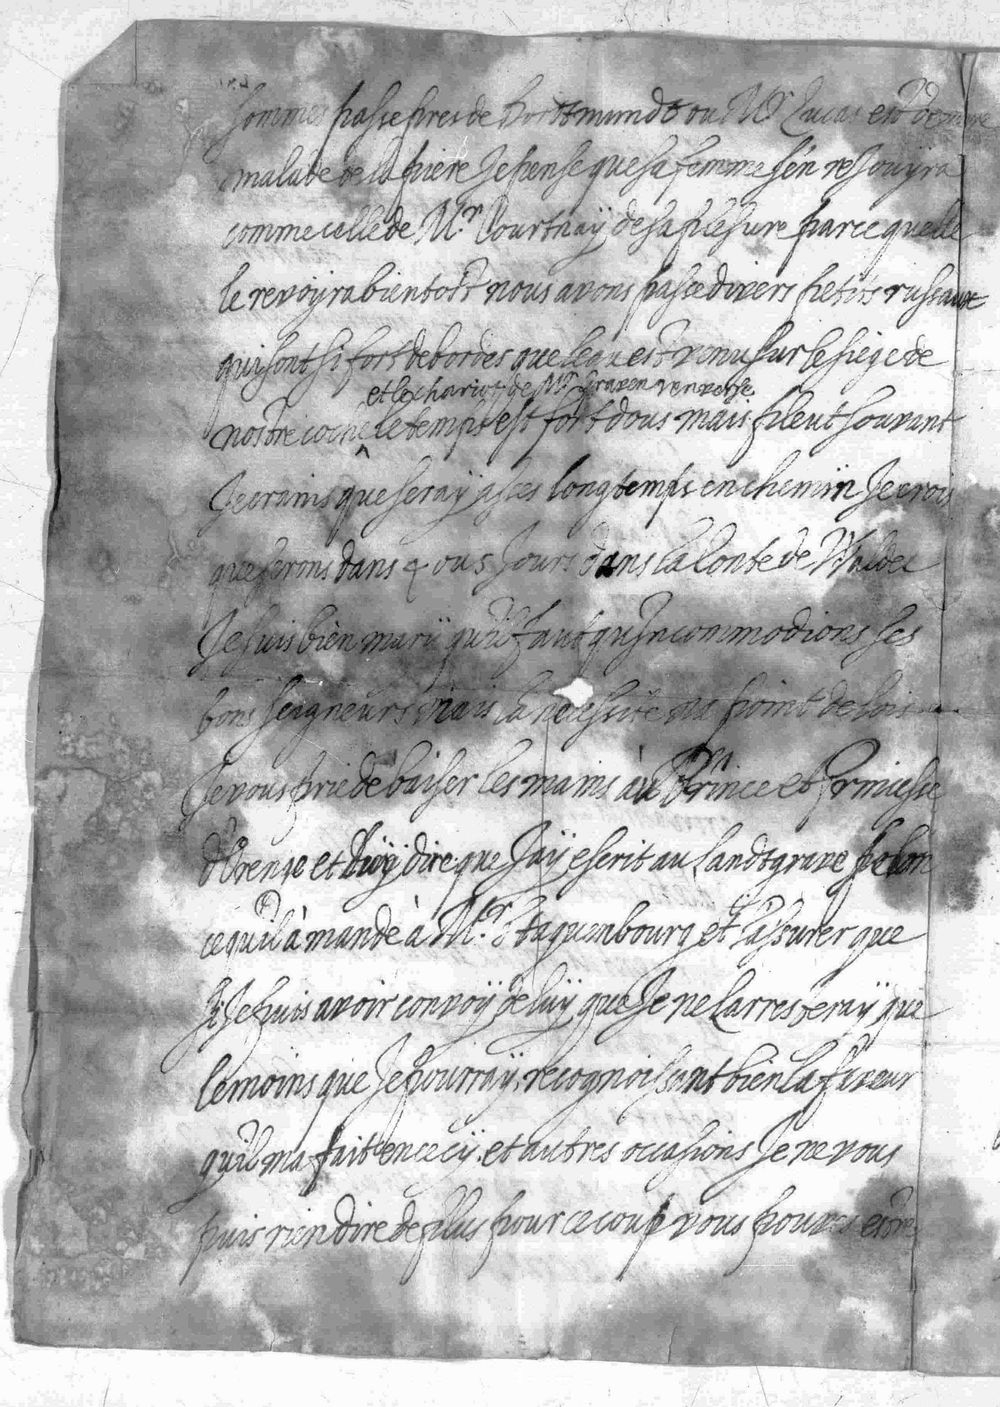 sommes passe pres de Dortmundt ou Mr Lucas est demure
malade de la piere Je pense que sa femme s'en resouÿra
comme celle de Mr. Courtnaÿ de sa plesure parce quelle
le revoÿra bientost nous avons passe divers petits russaux
qui sont si fort debordes que leau est venu sur le siege de
et le chariot de Mr Craven renverse
nostre coche le temps est fort dous mais pleut souvant
Je crains que seraÿ asses longtemps en chemin Je crois
que serons dans 4 ou 5 Jours dans la Conte de Waldec
Je suis bien marÿ qu'il faut qu'Incommodions ses
bons seigneurs mais la necessite na point de lois
Je vous prie de baiser les mains àu Prince et Princesse
d'Orenge et luÿ dire que J'aÿ escrit au Landtgrave selon
ce quil à mandè à Mr. Staquenbourg et l'assurer que
si Je puis avoir convoÿ de luÿ que Je ne l'arresteraÿ que
le moins que Je pourraÿ, recognoissant bien la faveur
qu'il ma fait en cecÿ et autres occasions Je ne vous
puis rien dire de plus pour ce coup vous pouves estre